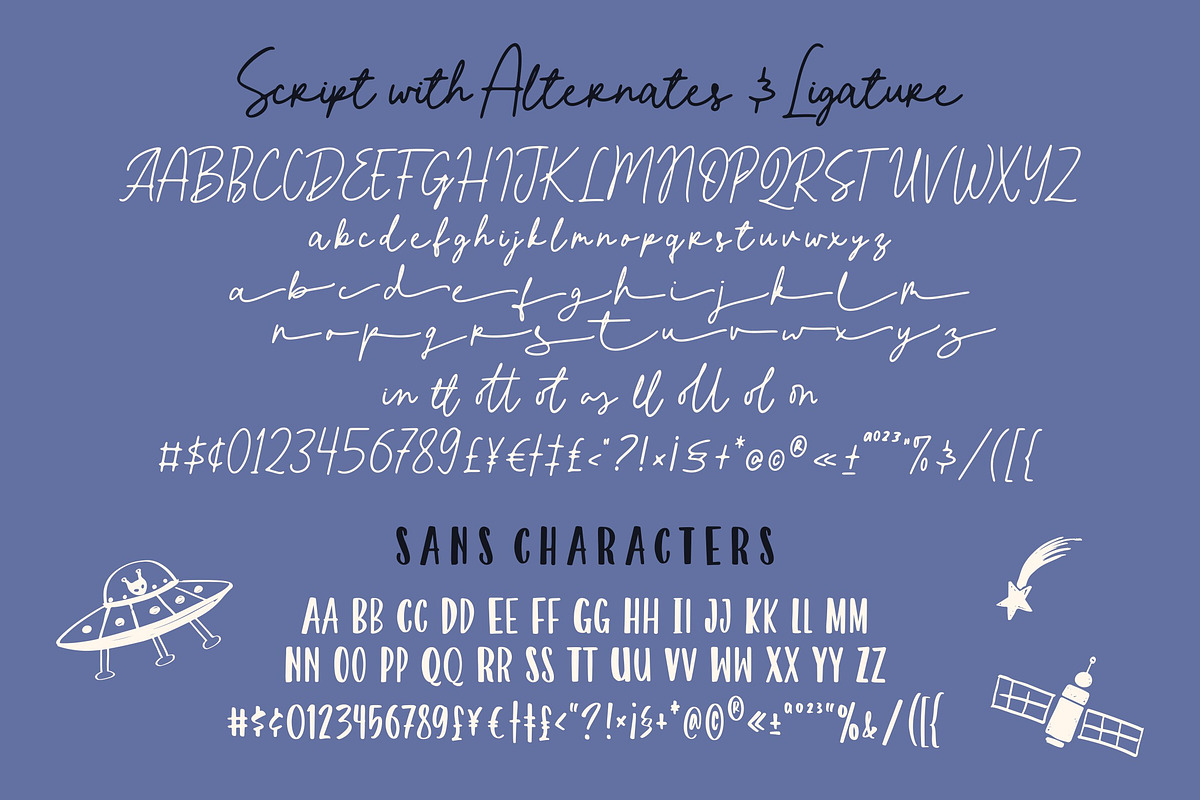 Script with Alternates & Ligature
AABBCCDEEFGHIJKLMNOPQRSTUVWXYZ
abcdefghijklmnopqrstuvwxyz
abcdefghijklm
nopqrstuvwxyz
in tt ott ot as ll oll ol on
#$¢0123456789£¥€†‡₤<"?!×¡§+*@©®«±ao23"%&/([{
SANS CHARACTERS
AA BB CC DD EE FF GG HH II JJ KK LL MM
NN OO PP QQ RR SS TT UU VV WW XX YY ZZ
#$¢0123456789£¥€†‡₤<"?!×¡§+*@©®«±ao23"%&/([{